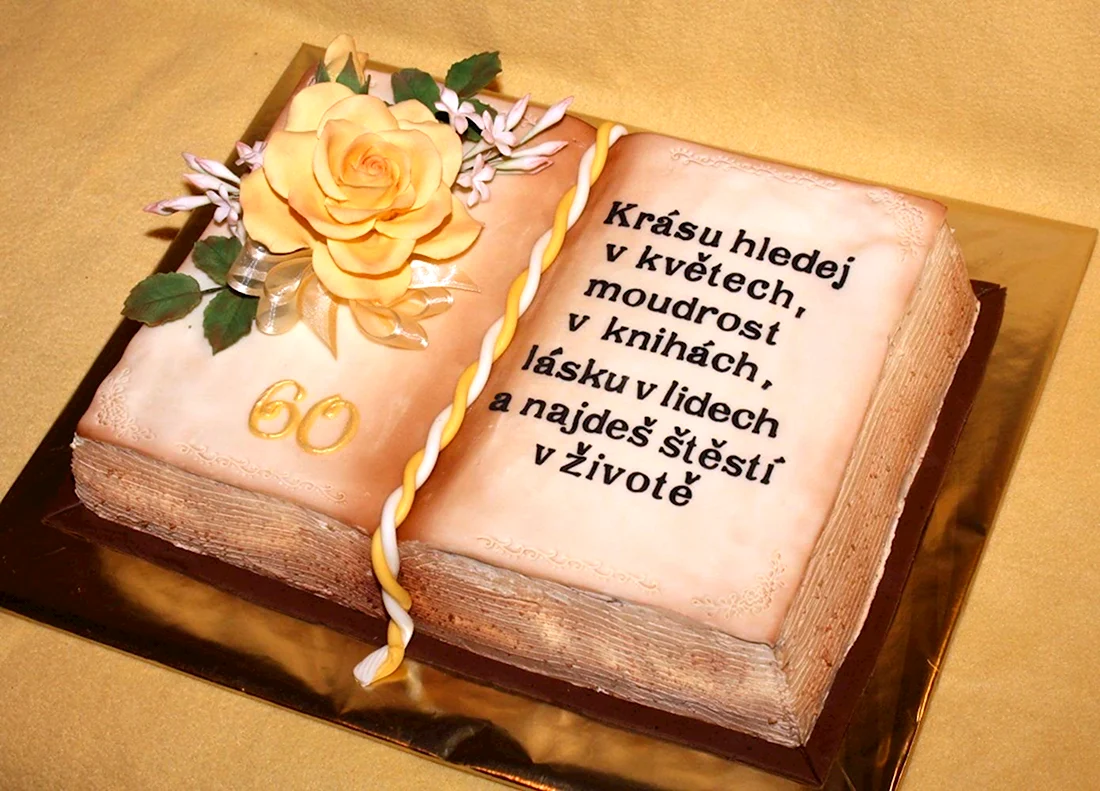 60
Krásu hledej
v květech,
moudrost
v knihách,
lásku v lidech
a najdeš štěstí
v životě